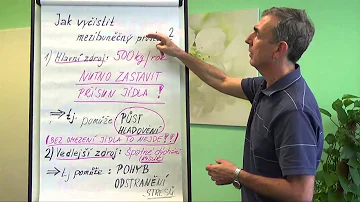 Jak vyčistit
mezibuněčný 2
1) Hlavní zdroj: 500 kg/rok
NUTNO ZASTAVIT
PŘÍSUN JÍDLA !
⇒ tj. pomůže: PŮST
HLADOVĚNÍ
(BEZ OMEZENÍ JÍDLA TO NEJDE !!)
2) Vedlejší zdroj: Špatné dýchání
⇒ tj pomůže: POHYB
ODSTRANĚNÍ
STRESŮ